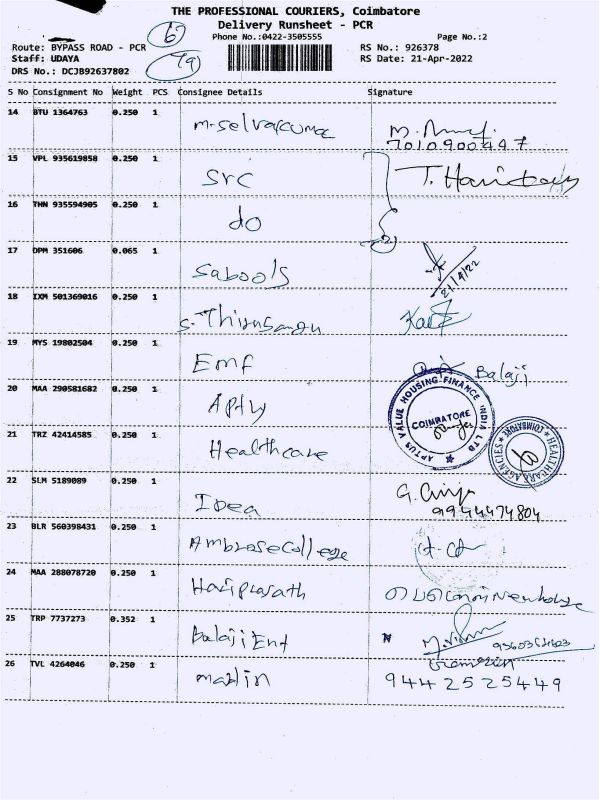 THE PROFESSIONAL COURIERS, Coimbatore
Delivery Runsheet - PCR
Phone No.:0422-3505555 Page No.:2
6
Route: BYPASS ROAD - PCR RS No.: 926378
Staff: UDAYA RS Date: 21-Apr-2022
DRS No.: DCJB92637802
S No Consignment No Weight PCS Consignee Details Signature
14 BTU 1364763 0.250 1 m.selvakuma
7010900447
15 VPL 935619858 0.250 1 SrC
16 THN 935594905 0.250 1 do
2
17 OPM 351606 0.065 1 Sabools
21/4/22
18 IXM 501369016 0.250 1
19 MYS 19802504 0.250 1 Emf Balaji
20 MAA 290581682 0.250 1
APTUS VALUE HOUSING FINANCE INDIA LTD
COIMBATORE
21 TRZ 42414585 0.250 1 Healthcare
HEALTHCARE AGENCIES COIMBATORE
22 SLM 5189089 0.250 1 Idea
9944474804
23 BLR 560398431 0.250 1 Ambrose College
24 MAA 288078720 0.250 1 Hariprasath
25 TRP 7737273 0.352 1 Balaji Ent
26 TVL 4264046 0.250 1 martin
94425 25449